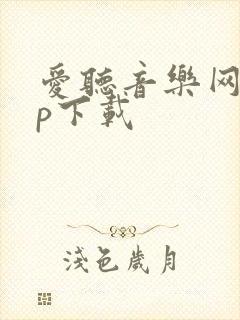 愛聽音樂网
p下載
淺色歲月